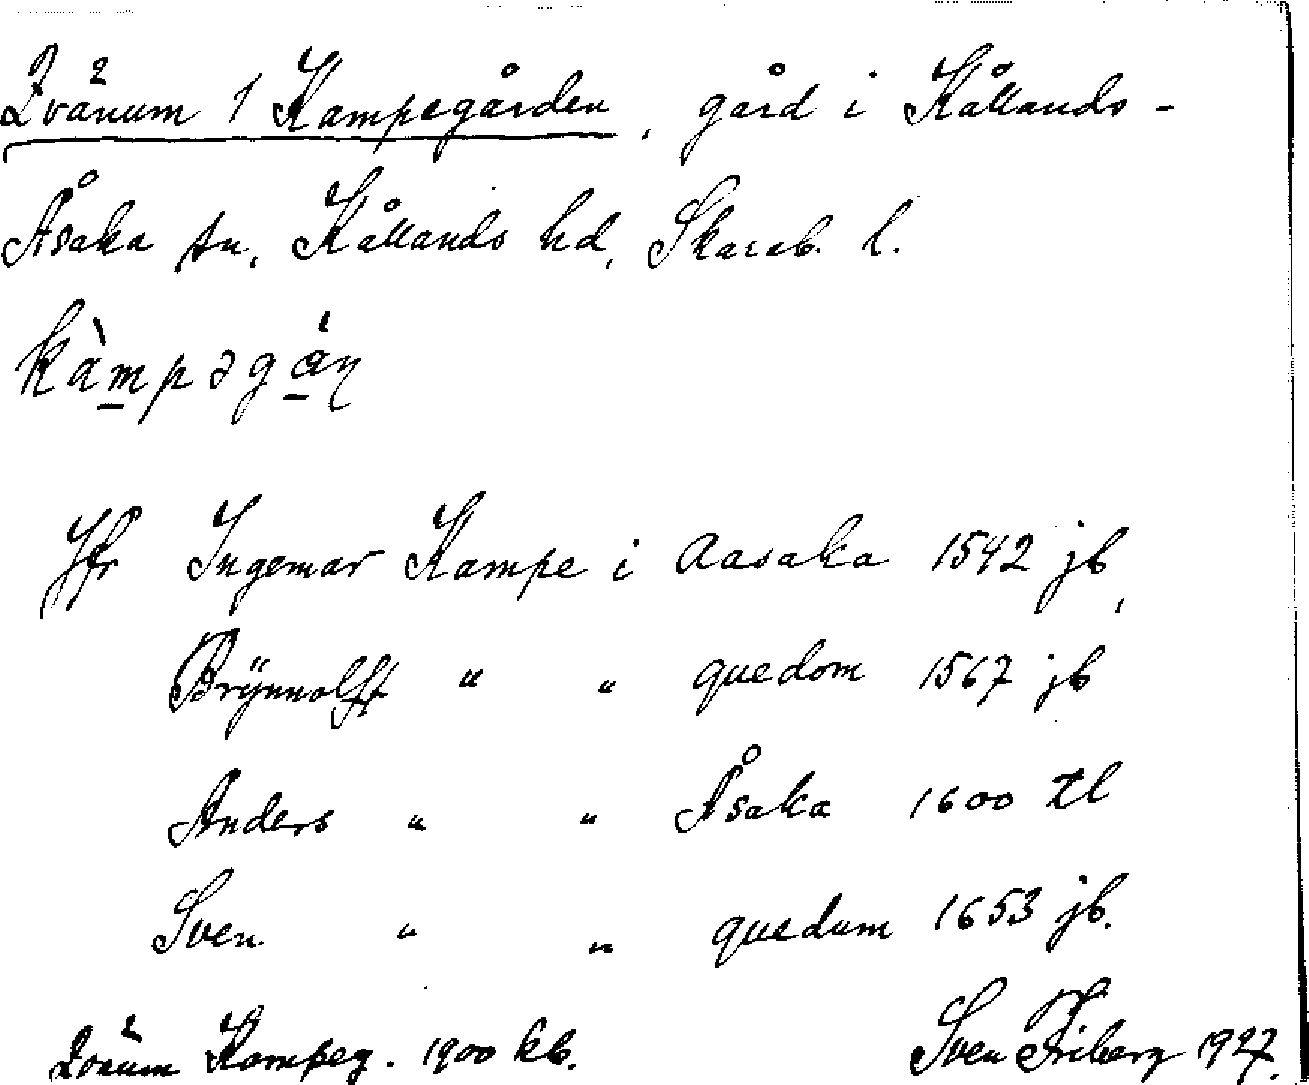 Qvänum 1 Kampegården, gård i Kållands-
Åsaka sn, Kållands hd, Skarab. l.
kàmpəgán
Jfr Ingemar Kampe i Aasaka 1542 jb,
Brÿnnolff " " quedom 1567 jb
Anders " " Åsaka 1600 tl
Sven " " quedum 1653 jb.
Qvänum Kampeg. 1900 kb.
Sven Friberg 1927.